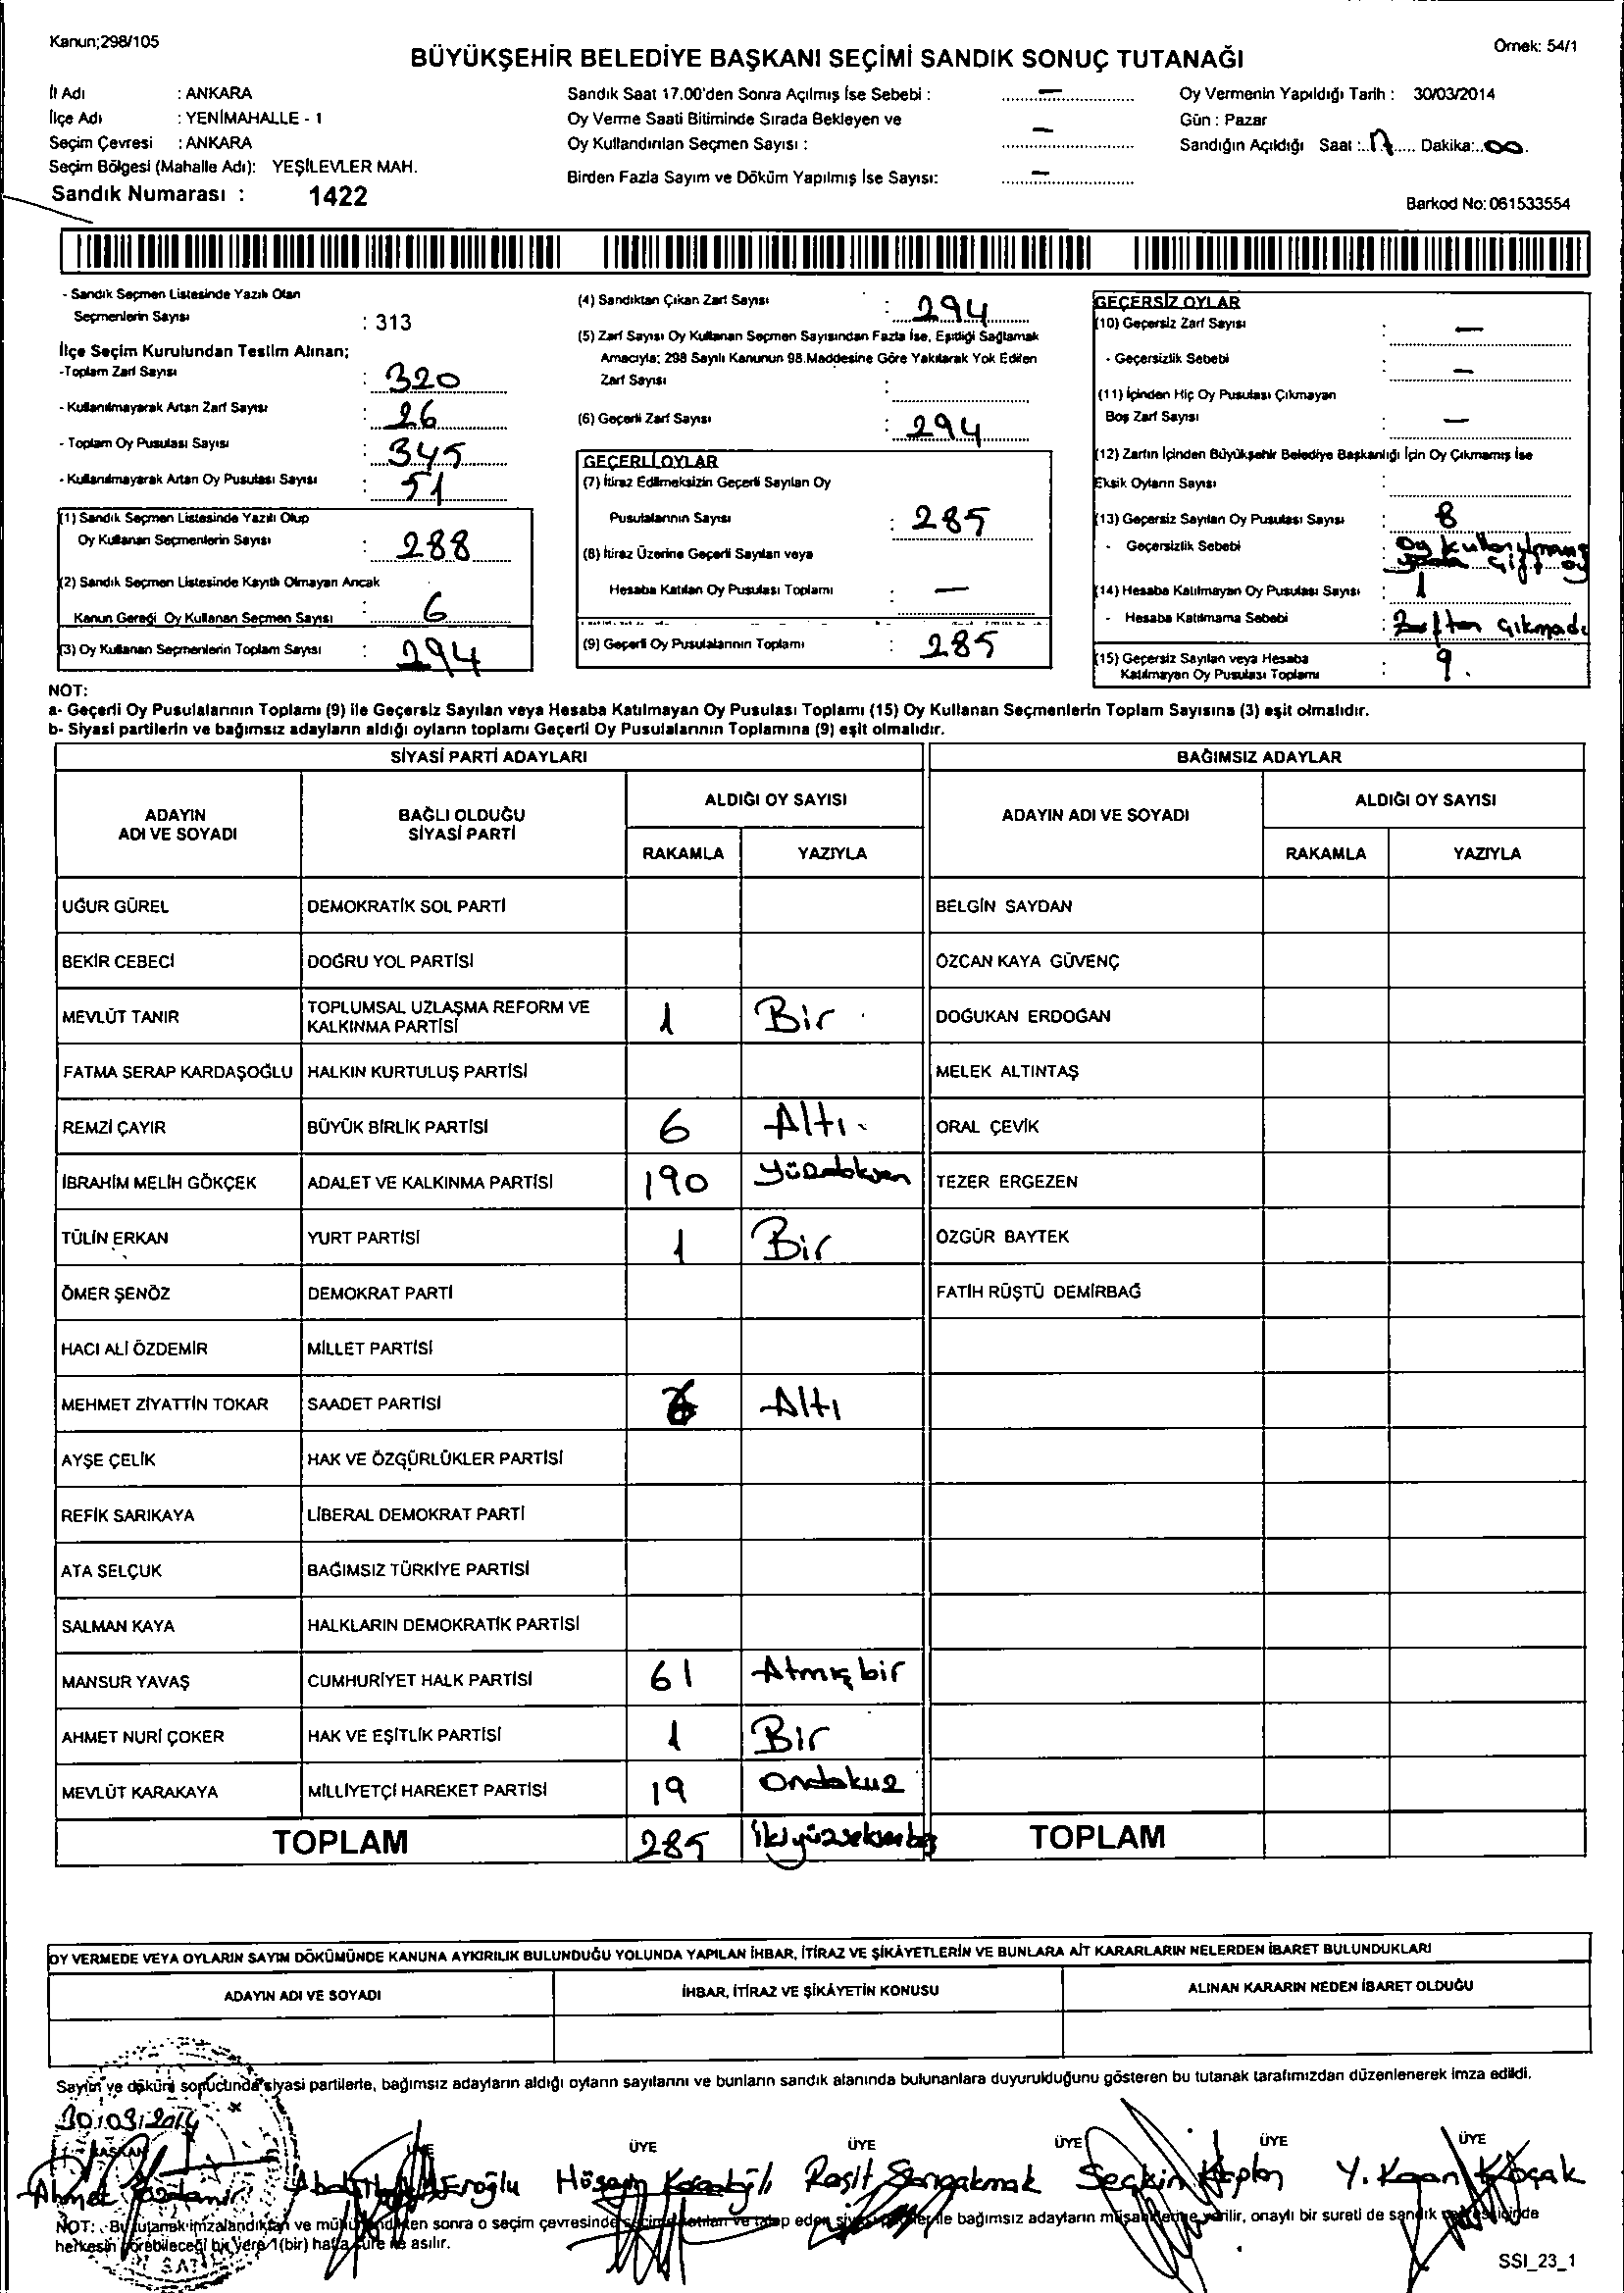 Kanun;298/105
Örnek: 54/1
BÜYÜKŞEHİR BELEDİYE BAŞKANI SEÇİMİ SANDIK SONUÇ TUTANAĞI
İl Adı : ANKARA
İlçe Adı : YENİMAHALLE - 1
Seçim Çevresi : ANKARA
Seçim Bölgesi (Mahalle Adı): YEŞİLEVLER MAH.
Sandık Numarası : 1422
Sandık Saat 17.00'den Sonra Açılmış İse Sebebi : —
Oy Verme Saati Bitiminde Sırada Bekleyen ve
Oy Kullandırılan Seçmen Sayısı : —
Birden Fazla Sayım ve Döküm Yapılmış İse Sayısı: —
Oy Vermenin Yapıldığı Tarih : 30/03/2014
Gün : Pazar
Sandığın Açıldığı Saat : 17 Dakika: 00
Barkod No: 061533554
- Sandık Seçmen Listesinde Yazılı Olan
Seçmenlerin Sayısı : 313
İlçe Seçim Kurulundan Teslim Alınan;
-Toplam Zarf Sayısı : 320
- Kullanılmayarak Artan Zarf Sayısı : 26
- Toplam Oy Pusulası Sayısı : 345
- Kullanılmayarak Artan Oy Pusulası Sayısı : 51
(1) Sandık Seçmen Listesinde Yazılı Olup
Oy Kullanan Seçmenlerin Sayısı : 288
(2) Sandık Seçmen Listesinde Kayıtlı Olmayan Ancak
Kanun Gereği Oy Kullanan Seçmen Sayısı : 6
(3) Oy Kullanan Seçmenlerin Toplam Sayısı : 294
(4) Sandıktan Çıkan Zarf Sayısı : 294
(5) Zarf Sayısı Oy Kullanan Seçmen Sayısından Fazla İse, Eşitliği Sağlamak
Amacıyla; 298 Sayılı Kanunun 98.Maddesine Göre Yakılarak Yok Edilen
Zarf Sayısı :
(6) Geçerli Zarf Sayısı : 294
GEÇERLİ OYLAR
(7) İtiraz Edilmeksizin Geçerli Sayılan Oy
Pusulalarının Sayısı : 285
(8) İtiraz Üzerine Geçerli Sayılan veya
Hesaba Katılan Oy Pusulası Toplamı : —
(9) Geçerli Oy Pusulalarının Toplamı : 285
GEÇERSİZ OYLAR
(10) Geçersiz Zarf Sayısı : —
- Geçersizlik Sebebi : —
(11) İçinden Hiç Oy Pusulası Çıkmayan
Boş Zarf Sayısı : —
(12) Zarfın İçinden Büyükşehir Belediye Başkanlığı İçin Oy Çıkmamış İse
Eksik Oyların Sayısı :
(13) Geçersiz Sayılan Oy Pusulası Sayısı : 8
- Geçersizlik Sebebi : Oy kullanılmamış
Çift oy
(14) Hesaba Katılmayan Oy Pusulası Sayısı : 1
- Hesaba Katılmama Sebebi : Zarftan çıkmadı
(15) Geçersiz Sayılan veya Hesaba
Katılmayan Oy Pusulası Toplamı : 9.
NOT:
a- Geçerli Oy Pusulalarının Toplamı (9) ile Geçersiz Sayılan veya Hesaba Katılmayan Oy Pusulası Toplamı (15) Oy Kullanan Seçmenlerin Toplam Sayısına (3) eşit olmalıdır.
b- Siyasi partilerin ve bağımsız adayların aldığı oyların toplamı Geçerli Oy Pusulalarının Toplamına (9) eşit olmalıdır.
SİYASİ PARTİ ADAYLARI BAĞIMSIZ ADAYLAR
ADAYIN ADI VE SOYADI BAĞLI OLDUĞU SİYASİ PARTİ ALDIĞI OY SAYISI ADAYIN ADI VE SOYADI ALDIĞI OY SAYISI
RAKAMLA YAZIYLA RAKAMLA YAZIYLA
UĞUR GÜREL DEMOKRATİK SOL PARTİ BELGİN SAYDAN
BEKİR CEBECİ DOĞRU YOL PARTİSİ ÖZCAN KAYA GÜVENÇ
MEVLÜT TANIR TOPLUMSAL UZLAŞMA REFORM VE KALKINMA PARTİSİ 1 Bir DOĞUKAN ERDOĞAN
FATMA SERAP KARDAŞOĞLU HALKIN KURTULUŞ PARTİSİ MELEK ALTINTAŞ
REMZİ ÇAYIR BÜYÜK BİRLİK PARTİSİ 6 Altı ORAL ÇEVİK
İBRAHİM MELİH GÖKÇEK ADALET VE KALKINMA PARTİSİ 190 Yüzdoksan TEZER ERGEZEN
TÜLİN ERKAN YURT PARTİSİ 1 Bir ÖZGÜR BAYTEK
ÖMER ŞENÖZ DEMOKRAT PARTİ FATİH RÜŞTÜ DEMİRBAĞ
HACI ALİ ÖZDEMİR MİLLET PARTİSİ
MEHMET ZİYATTİN TOKAR SAADET PARTİSİ 6 Altı
AYŞE ÇELİK HAK VE ÖZGÜRLÜKLER PARTİSİ
REFİK SARIKAYA LİBERAL DEMOKRAT PARTİ
ATA SELÇUK BAĞIMSIZ TÜRKİYE PARTİSİ
SALMAN KAYA HALKLARIN DEMOKRATİK PARTİSİ
MANSUR YAVAŞ CUMHURİYET HALK PARTİSİ 61 Atmışbir
AHMET NURİ ÇOKER HAK VE EŞİTLİK PARTİSİ 1 Bir
MEVLÜT KARAKAYA MİLLİYETÇİ HAREKET PARTİSİ 19 Ondokuz
TOPLAM 285 İkiyüzseksenbeş TOPLAM
OY VERMEDE VEYA OYLARIN SAYIM DÖKÜMÜNDE KANUNA AYKIRILIK BULUNDUĞU YOLUNDA YAPILAN İHBAR, İTİRAZ VE ŞİKÂYETLERİN VE BUNLARA AİT KARARLARIN NELERDEN İBARET BULUNDUKLARI
ADAYIN ADI VE SOYADI İHBAR, İTİRAZ VE ŞİKÂYETİN KONUSU ALINAN KARARIN NEDEN İBARET OLDUĞU
Sayım ve döküm sonucunda siyasi partilerle, bağımsız adayların aldığı oyların sayılarını ve bunların sandık alanında bulunanlara duyurulduğunu gösteren bu tutanak tarafımızdan düzenlenerek imza edildi.
30/03/2014
BAŞKAN ÜYE ÜYE ÜYE ÜYE ÜYE ÜYE
Ahmet Eroğlu Hüseyin Raşit Sarıgakmak Seçkin Kaplan Y. Kaan Koçak
NOT: Bu tutanak imzalandıktan ve mühürlendikten sonra o seçim çevresinde seçime katılan ve talep eden siyasi partiler ile bağımsız adayların müşahitlerine verilir, onaylı bir sureti de sandık çevresi içinde
herkesin görebileceği bir yere 1(bir) hafta süre ile asılır.
SSI_23_1